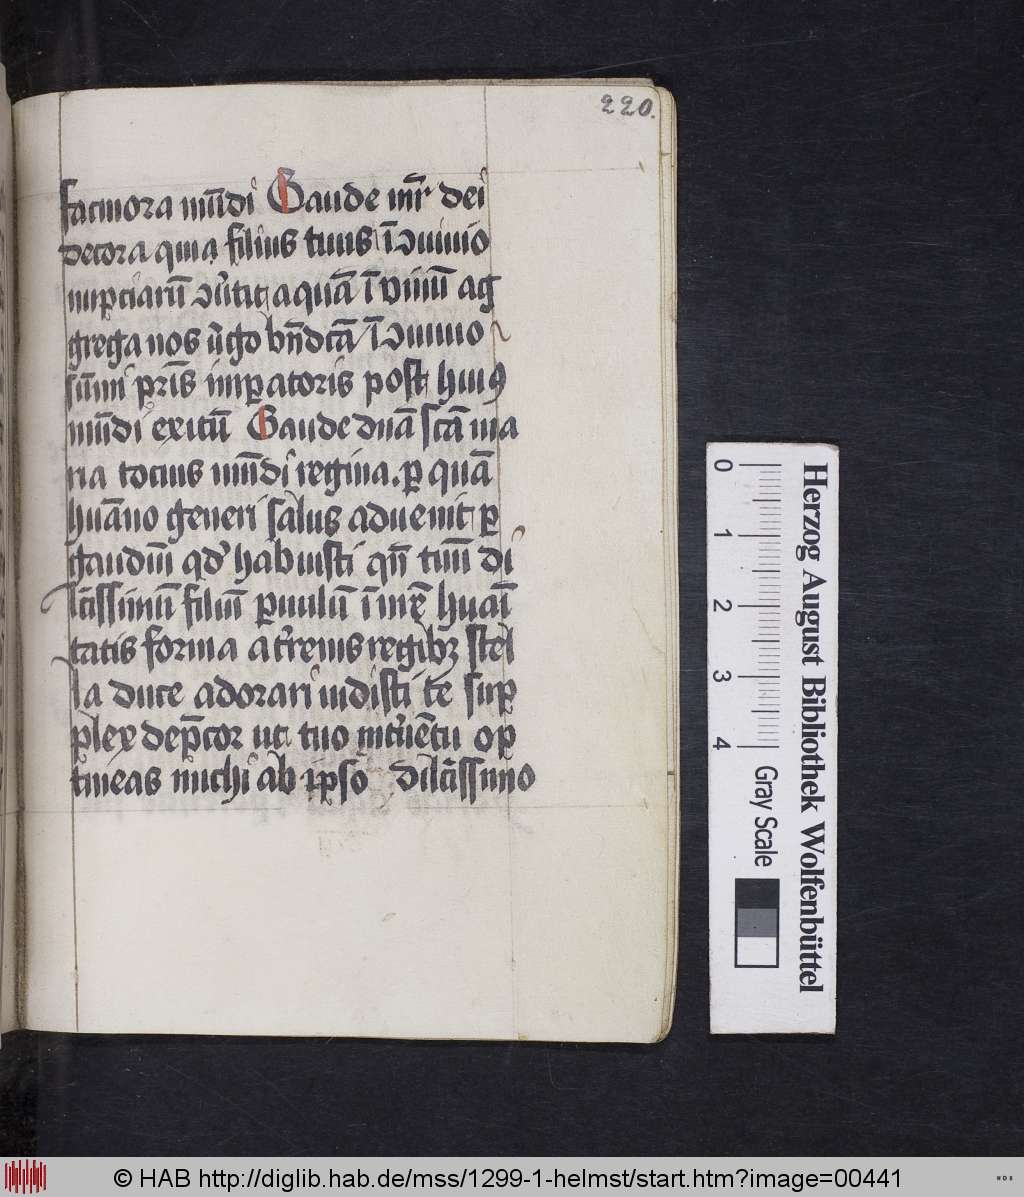 220.
facinora mu̅di Gaude mr̅ dei
decora quia filius tuus i̅ diuino
nupciaru̅ v̓tit aqua̅ i̅ vinu̅ ag
grega nos v̓go bn̅dcta̅ i̅ diuino
su̅mi pr̅is imꝑatoris post huiꝰ
mu̅di exitu̅ Gaude dn̅a sca̅ ma
ria tocius mu̅di regina. ꝑ qua̅
hua̅no generi salus aduenit ꝑ
gaudiu̅ qd̓ habuisti qn̅ tuu̅ di
lc̅issimu̅ filiu̅ ꝑuulu̅ i̅ hua̅i̅
tatis forma a regibꝫ stel
la duce adorari uidisti te sup
plex dep̅cor ut tuo op
tineas michi ab ip̅so dilc̅issimo
0 1 2 3 4
Gray Scale
Herzog August Bibliothek Wolfenbüttel
© HAB http://diglib.hab.de/mss/1299-1-helmst/start.htm?image=00441